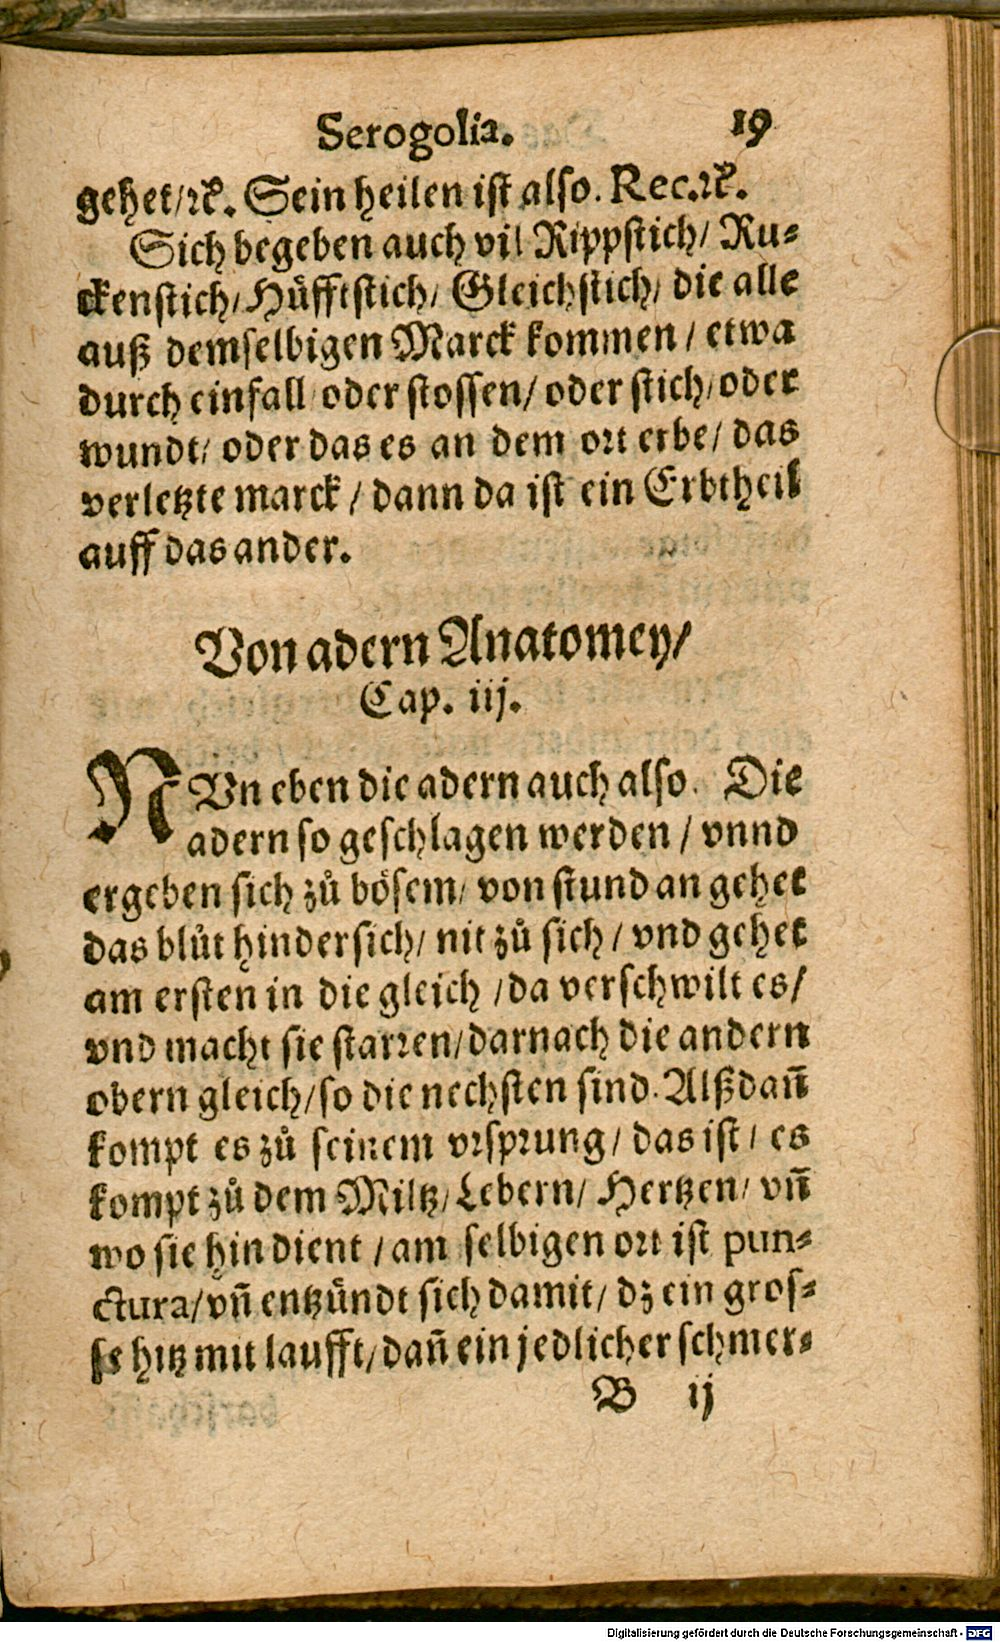 Serogolia. 19
gehet/ꝛc̃. Sein heilen ist also. Rec.ꝛc̃.
Sich begeben auch vil Rippstich/ Ru-
ckenstich/ Hüfftstich/ Gleichstich/ die alle
auß demselbigen Marck kommen / etwa
durch einfall oder stossen/ oder stich/ oder
wundt/ oder das es an dem ort erbe/ das
verletzte marck / dann da ist ein Erbtheil
auff das ander.
Von adern Anatomey/
Cap. iij.
NVn eben die adern auch also. Die
adern so geschlagen werden / vnnd
ergeben sich zů bösem/ von stund an gehet
das blůt hindersich/ nit zů sich / vnd gehet
am ersten in die gleich / da verschwilt es/
vnd macht sie starren/ darnach die andern
obern gleich/ so die nechsten sind. Alßdañ
kompt es zů seinem vrsprung/ das ist/ es
kompt zů dem Miltz/ Lebern/ Hertzen/ vñ
wo sie hin dient / am selbigen ort ist pun-
ctura/ vñ entzündt sich damit/ dz ein gros-
se hitz mit laufft/ dañ ein jedlicher schmer-
B ij
Digitalisierung gefördert durch die Deutsche Forschungsgemeinschaft - DFG